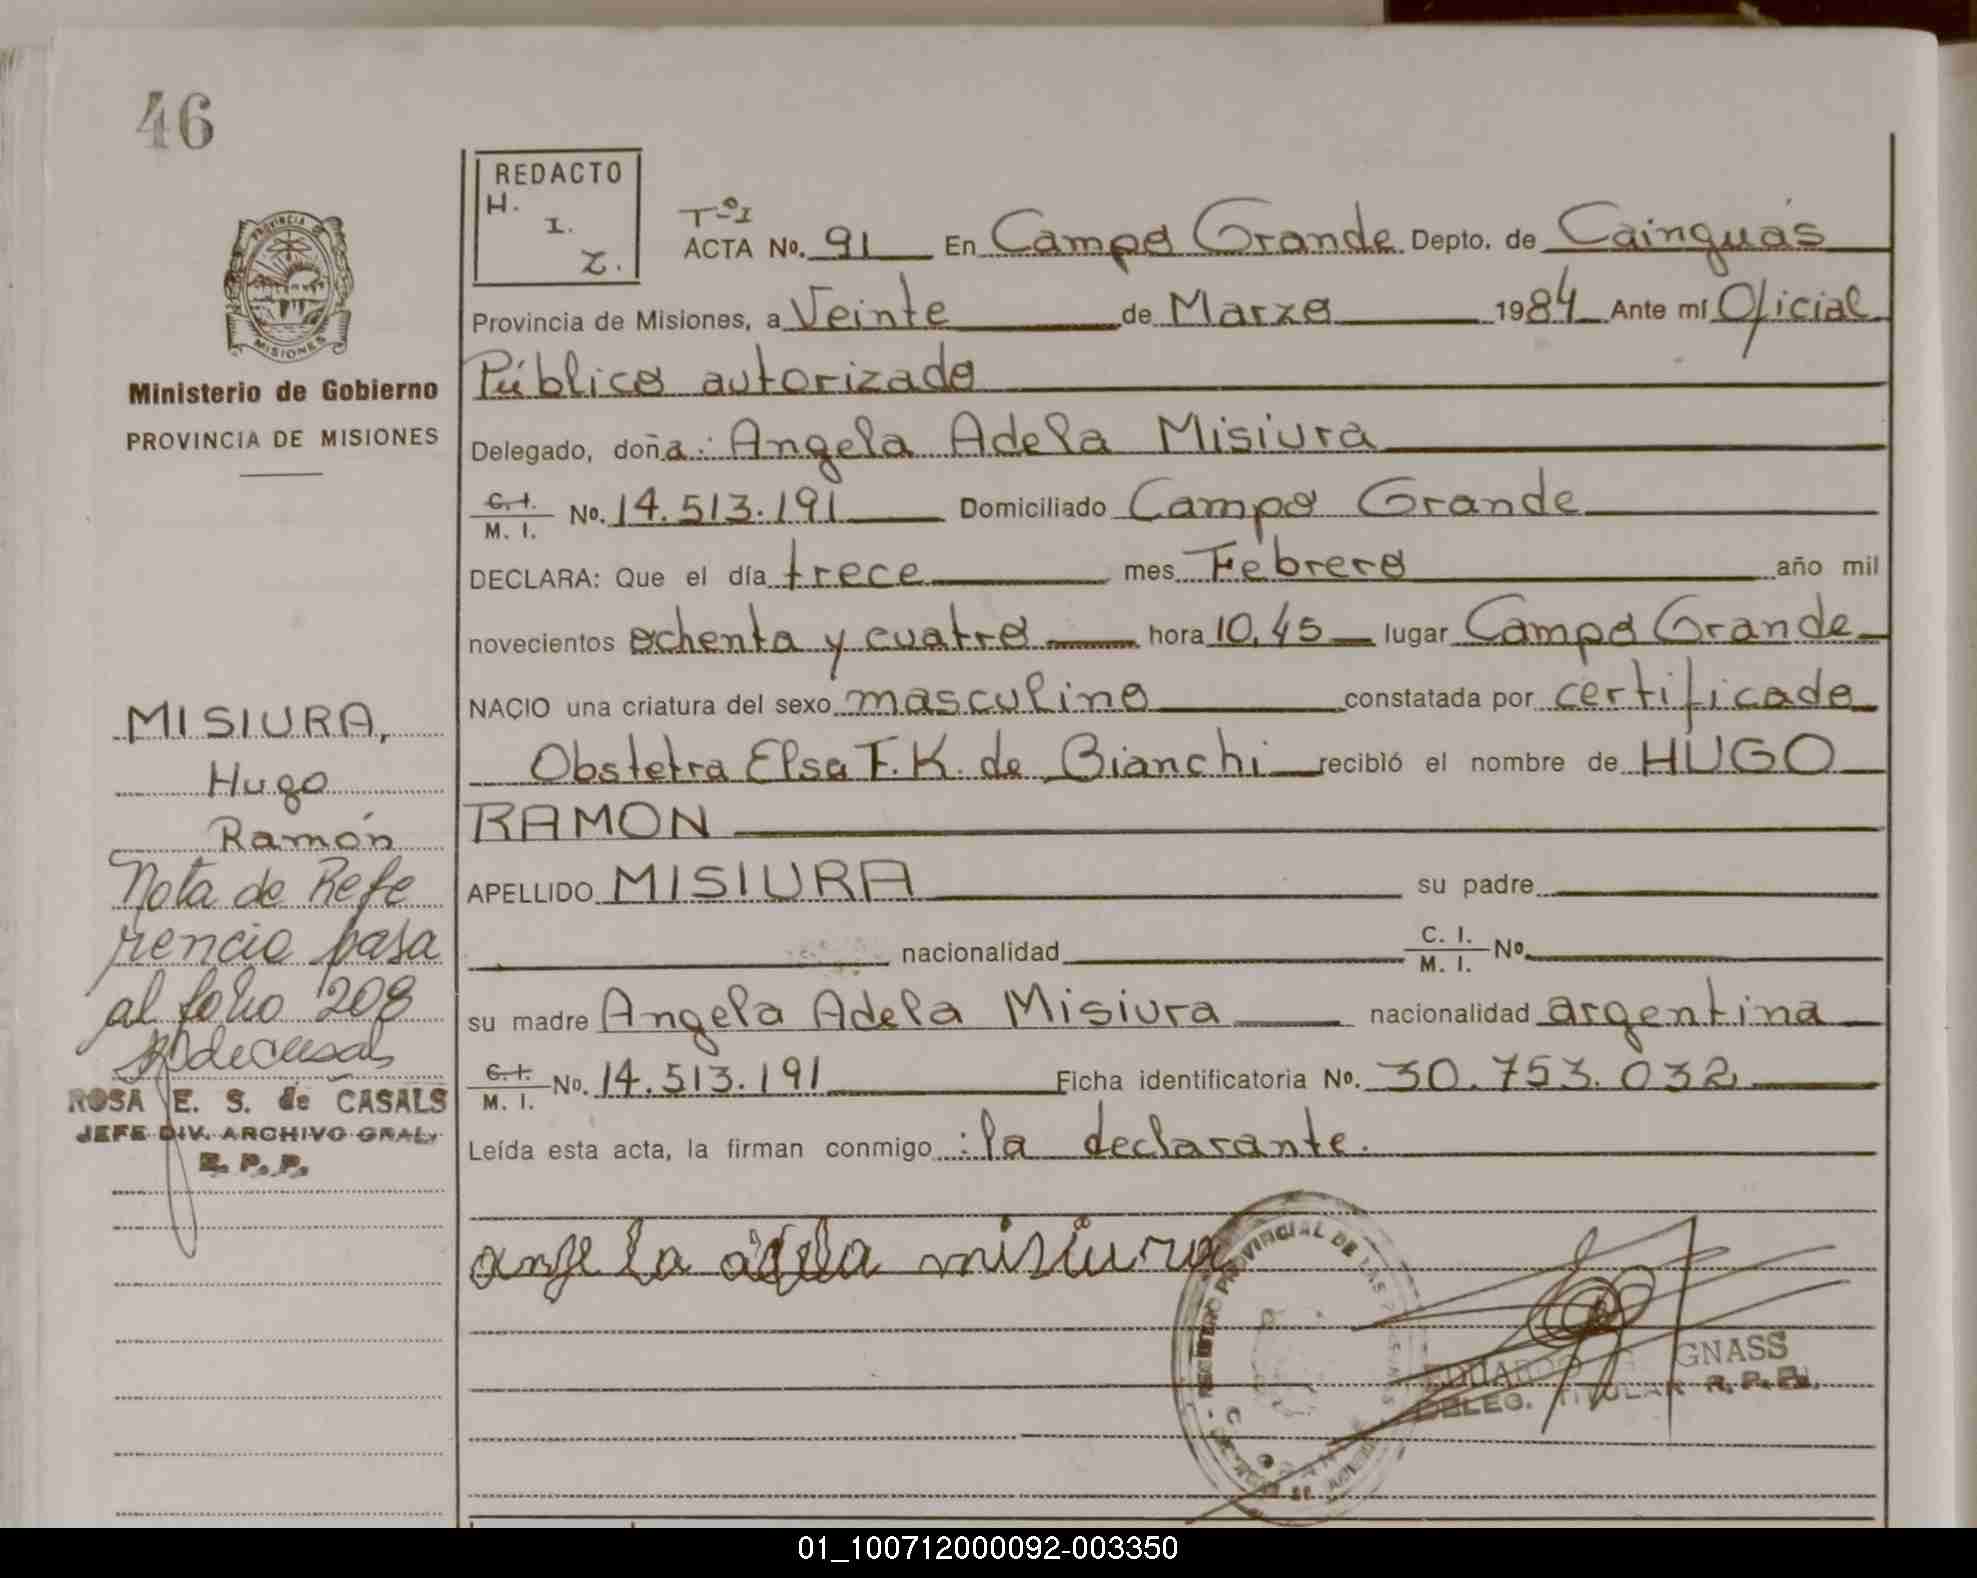 46
REDACTO
H.
I.
Z.
PROVINCIA
MISIONES
Ministerio de Gobierno
PROVINCIA DE MISIONES
Tº I
ACTA No. 91 En Campo Grande Depto. de Cainguás
Provincia de Misiones, a Veinte de Marzo 1984 Ante mí Oficial
Público autorizado
Delegado, doña: Angela Adela Misiura
C. I. / M. I. No. 14.513.191 Domiciliado Campo Grande
DECLARA: Que el día trece mes Febrero año mil
novecientos ochenta y cuatro hora 10,45 lugar Campo Grande
NACIO una criatura del sexo masculino constatada por certificado
Obstetra Elsa F.K. de Bianchi recibió el nombre de HUGO
RAMON
APELLIDO MISIURA su padre
nacionalidad C. I. / M. I. No.
su madre Angela Adela Misiura nacionalidad argentina
C. I. / M. I. No. 14.513.191 Ficha identificatoria No. 30.753.032
Leída esta acta, la firman conmigo : la declarante.
MISIURA,
Hugo
Ramón
Nota de Refe
rencia pasa
al folio 208
ROSA E. S. de CASALS
JEFE DIV. ARCHIVO GRAL.
R. P. P.
angela adela misiura
PROVINCIAL DE LAS
EDUARDO GNASS
DELEG. TITULAR R. P. P.
01_100712000092-003350